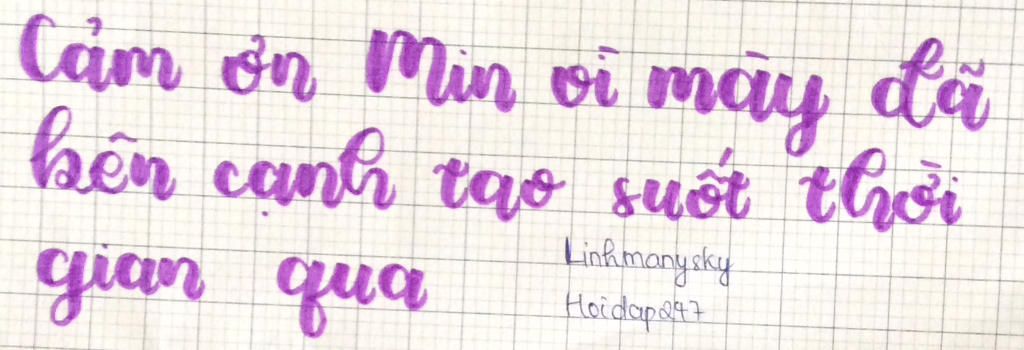 Cảm ơn Min vì mày đã
bên cạnh tao suốt thời
gian qua
Linhmanysky
Hoidap247